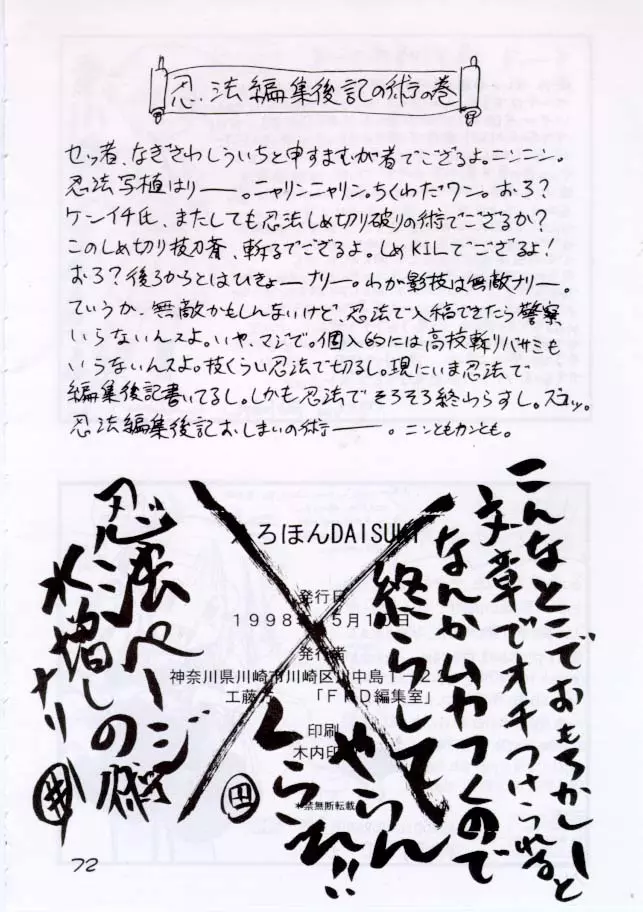 忍法編集後記の術の巻
せっ者、なぎさわしういちと申すまむが者でござるよ。ニンニン。
忍法写植はりーー。ニャリンニャリン。ちくわだワン。おろ?
ケンイチ氏、またしても忍法しめ切り破りの術でござるか?
このしめ切り抜刀斎、斬るでござるよ。しめKILでござるよ!
おろ?後ろからとはひきょーナリー。わが影技は無敵ナリー。
ていうか、無敵かもしんまいけど、忍法で入稿できたら警察
いらないんスよ。いや、マジで。個人的には高枝斬りバサミも
いらないんスよ。枝くらい忍法で切るし。現にいま忍法で
編集後記書いてるし。しかも忍法でそろそろ終わらすし。ズコッ。
忍法編集後記おしまいの術ーー。ニンともカンとも。
こんなとこでおもろかしーと
文章でオチつけられると
なんかムカつくので
終らして
やらん
くらえ!!
田
ろほんDAISUKI
発行日
1998年5月10日
発行者
神奈川県川崎市川崎区川中島1-22
工藤 「FRD編集室」
印刷
木内印
*禁無断転載
忍法ページ
水増しの術
ナリ
井
72